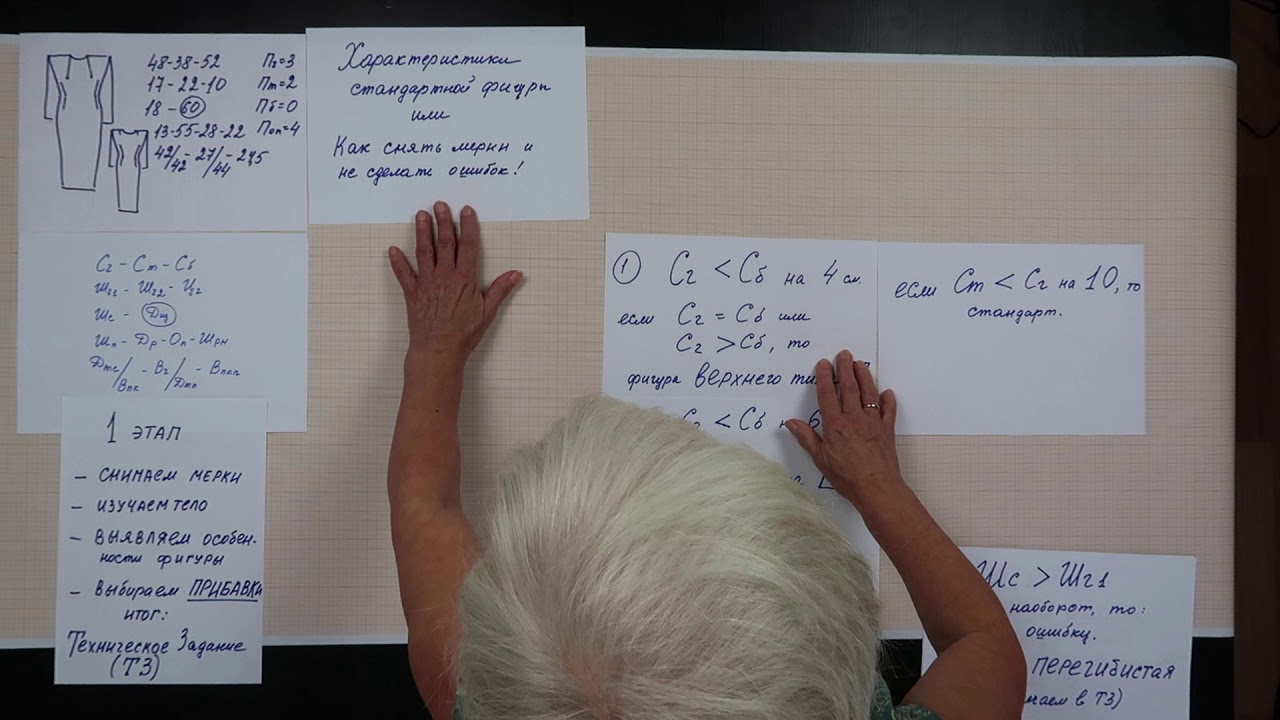 48-38-52 Пг=3
17-22-10 Пт=2
18-60 Пб=0
13-55-28-22 Поп=4
42/42-27/44-
Характеристики
стандартной фигуры
или
Как снять мерки и
не сделать ошибок!
Сг - Ст - Сб
Шг1 - Шг2 - Цг
Шс -
Шп - Др - Оп -
Дтс/Впк - Вг/Дтп - Впкп
1 ЭТАП
- СНИМАЕМ МЕРКИ
- ИЗУЧАЕМ ТЕЛО
- ВЫЯВЛЯЕМ ОСОБЕН-
НОСТИ ФИГУРЫ
- Выбираем ПРИБАВКИ
ИТОГ:
Техническое Задание
(ТЗ)
1 Сг < Сб на 4 см.
если Сг = Сб или
Сг > Сб, то
фигура ВЕРХНЕГО
Сг < Сб
если Ст < Сг на 10, то
стандарт.
Шс > Шг1
наоборот, то:
ошибку.
ПЕРЕГИБИСТАЯ
в ТЗ)